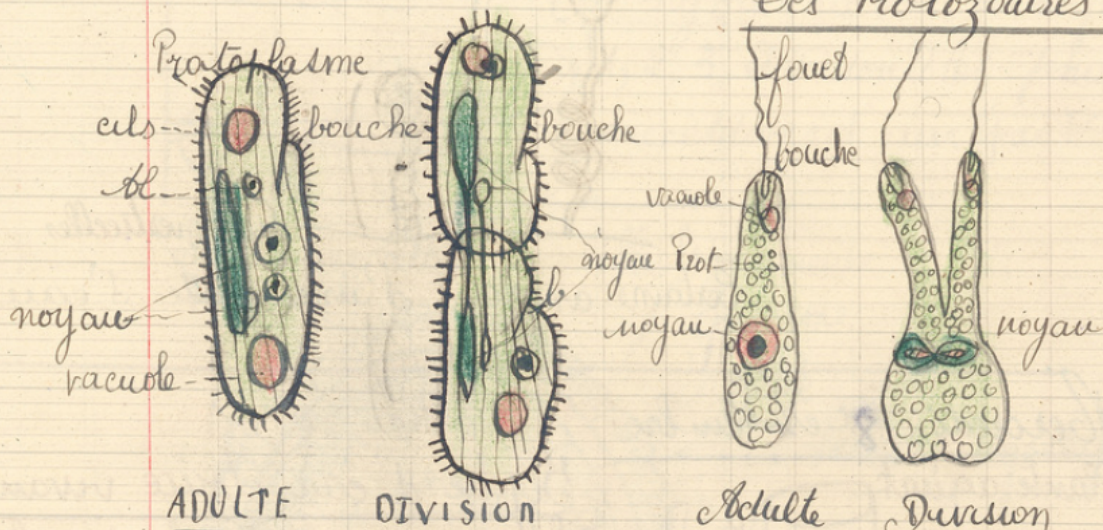 Les Protozoaires
Protoplasme
cils
bouche
Al
noyau
vacuole
ADULTE
bouche
noyau
b
DIVISION
fouet
bouche
vacuole
Prot
noyau
Adulte
noyau
Division